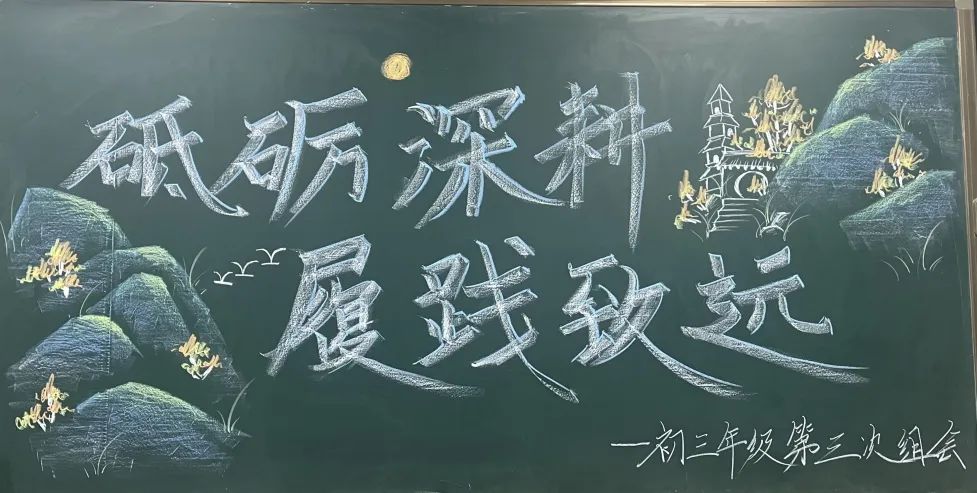 砥砺深耕
履践致远
—初三年级第三次组会